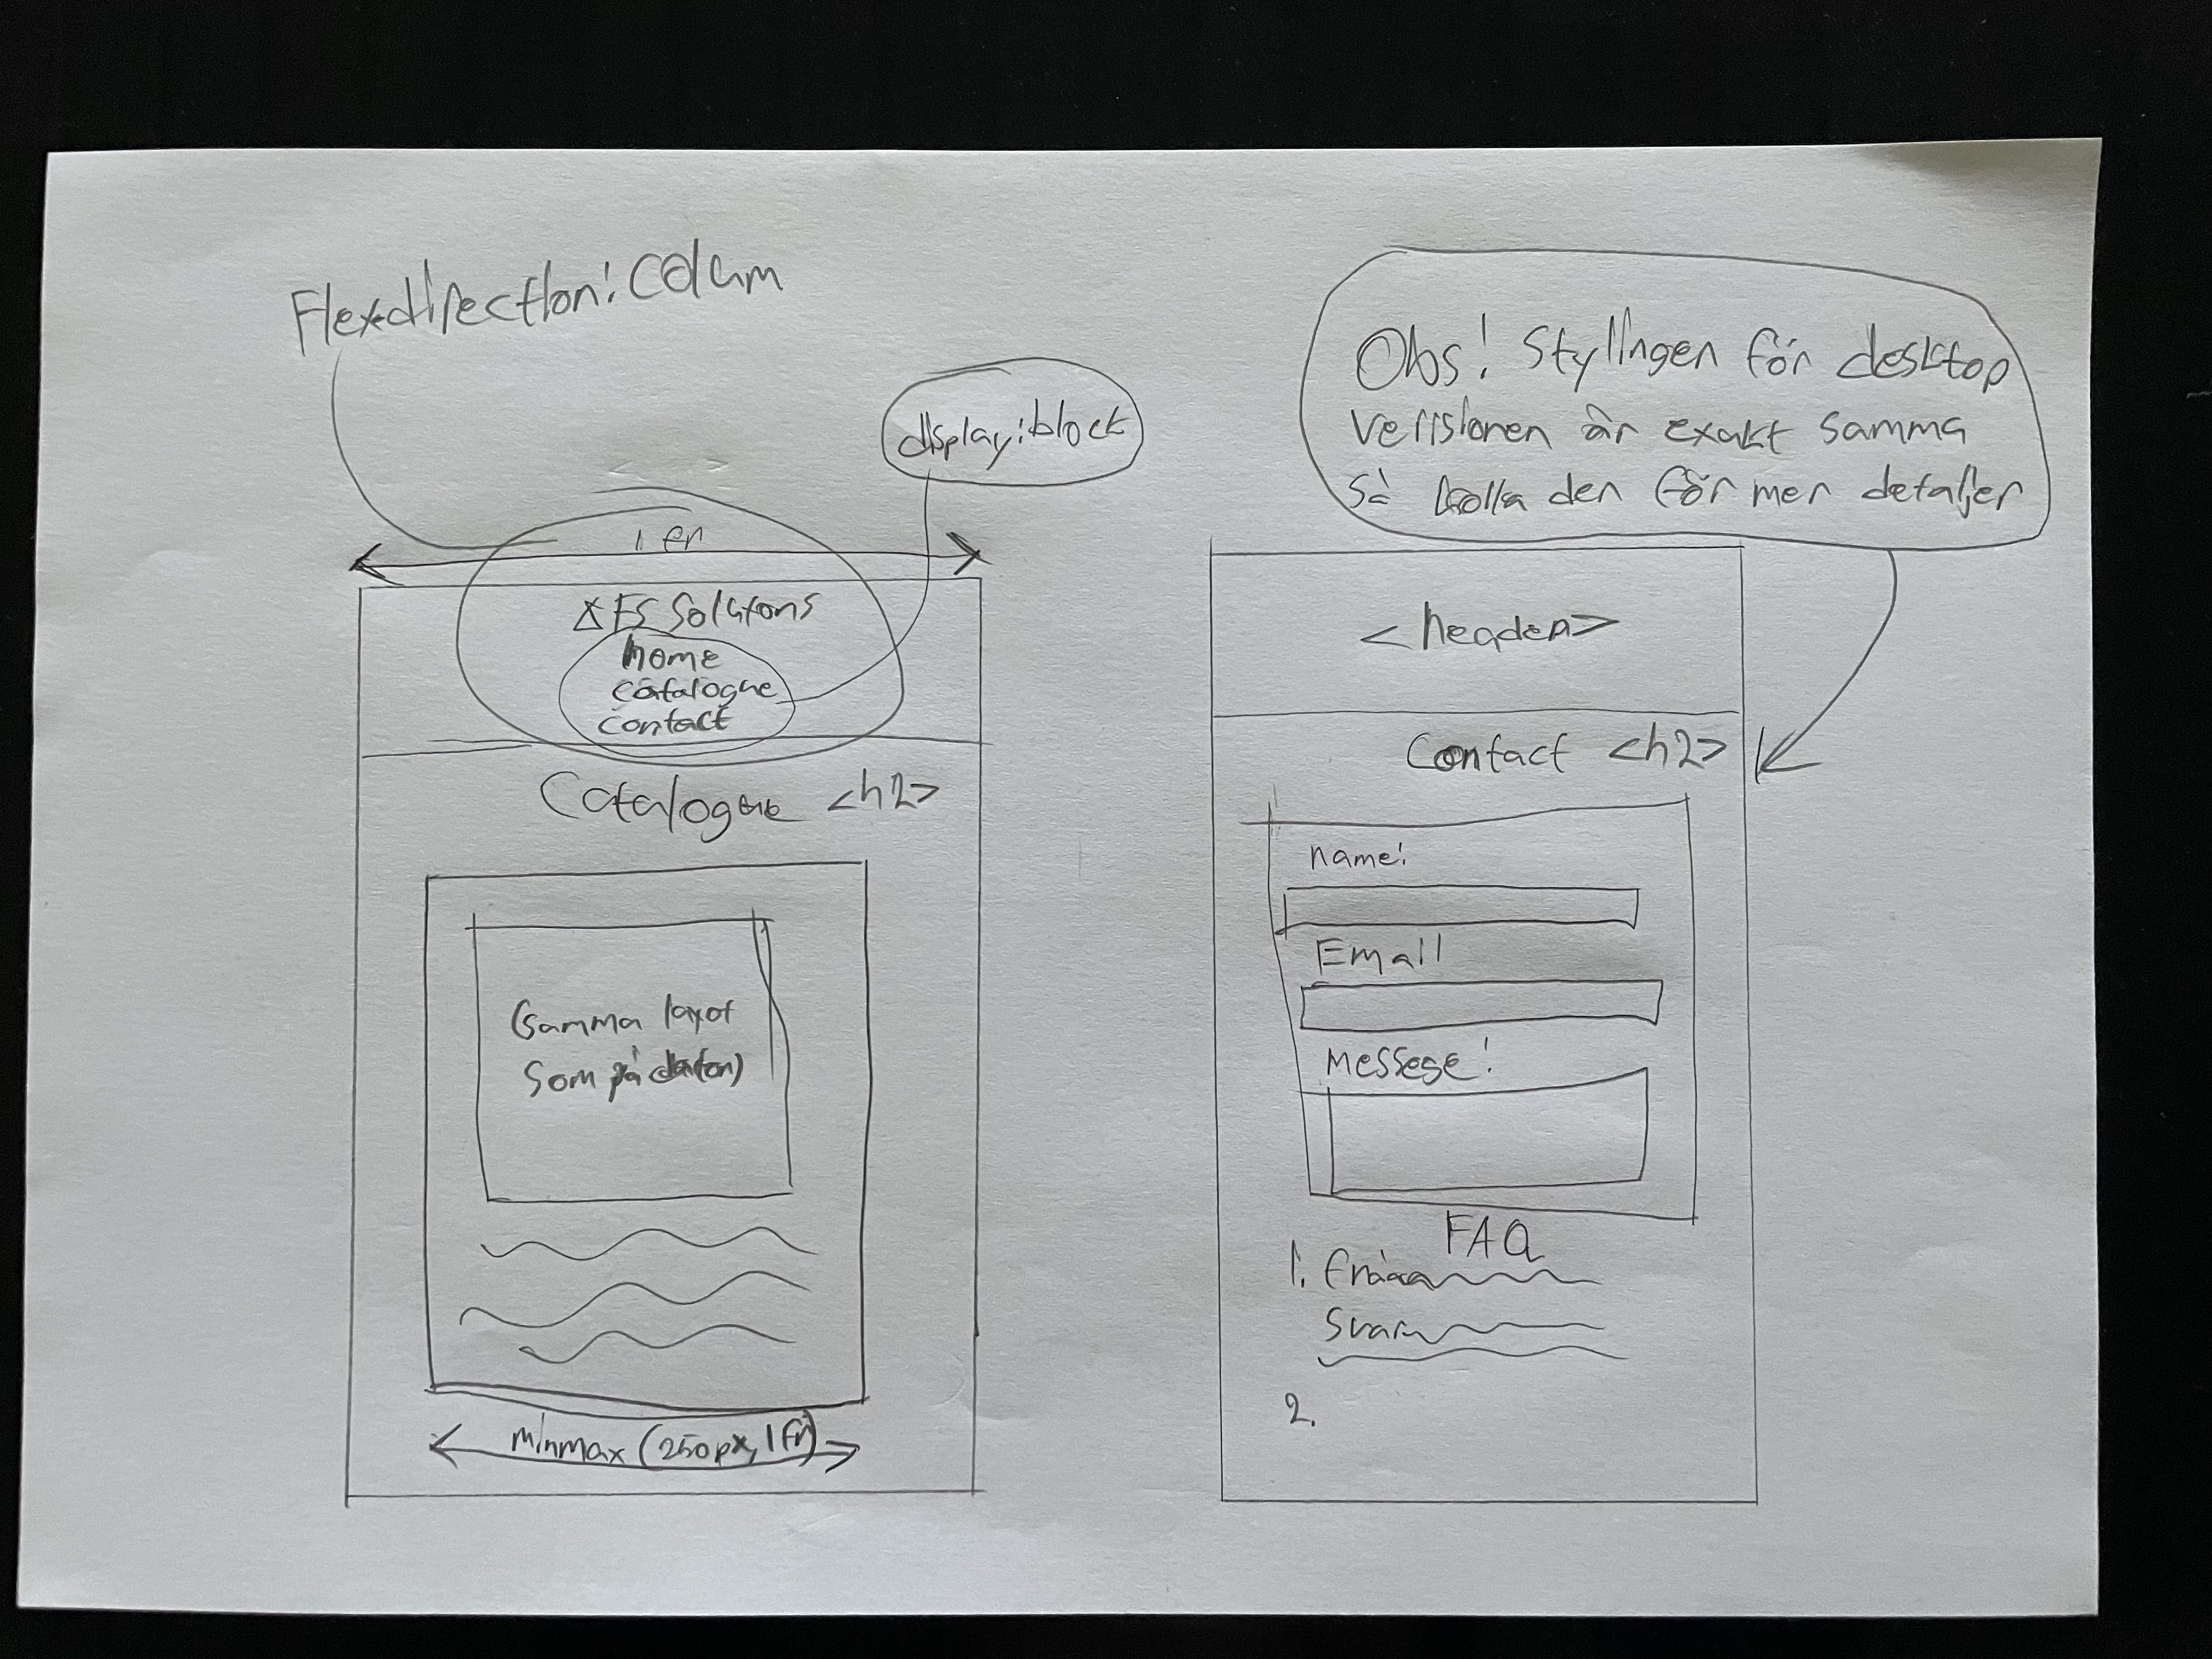 Flexdirection: Column
display: block
1 fr
XFS Solutions
home
catalogue
contact
Catalogue <h2>
(samma layot
som på datorn)
minmax(250px, 1fr)
Obs! Stylingen för desktop
verisionen är exakt samma
så kolla den för mer detaljer
<header>
Contact <h2>
name:
Email
Messege:
FAQ
1.
2.